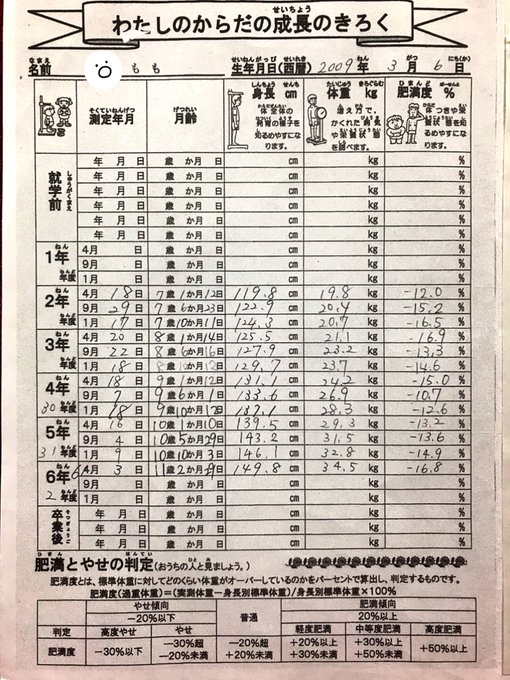 わたしのからだの成長のきろく
名前 もも 生年月日(西暦) 2009年 3月 6日
測定年月 月齢 身長 cm 体重 kg 肥満度 %
就学前
年 月 日 歳 か月 日 cm kg %
年 月 日 歳 か月 日 cm kg %
年 月 日 歳 か月 日 cm kg %
年 月 日 歳 か月 日 cm kg %
年 月 日 歳 か月 日 cm kg %
年 月 日 歳 か月 日 cm kg %
1年 年度
4月 日 歳 か月 日 cm kg %
9月 日 歳 か月 日 cm kg %
1月 日 歳 か月 日 cm kg %
2年 年度
4月 18日 7歳 1か月 12日 119.8 cm 19.8 kg -12.0 %
9月 29日 7歳 6か月 23日 122.9 cm 20.4 kg -15.2 %
1月 17日 7歳 10か月 11日 124.3 cm 20.7 kg -16.5 %
3年 年度
4月 20日 8歳 1か月 14日 125.5 cm 21.1 kg -16.9 %
9月 22日 8歳 6か月 16日 127.9 cm 23.2 kg -13.3 %
1月 18日 8歳 か月 日 129.7 cm 23.7 kg -14.6 %
4年 30年度
4月 18日 9歳 1か月 12日 131.1 cm 24.2 kg -15.0 %
9月 7日 9歳 6か月 1日 133.6 cm 26.9 kg -10.7 %
1月 18日 9歳 10か月 日 137.1 cm 28.3 kg -12.6 %
5年 31年度
4月 16日 10歳 1か月 10日 139.5 cm 29.3 kg -13.2 %
9月 4日 10歳 5か月 29日 143.2 cm 31.5 kg -13.6 %
1月 9日 10歳 10か月 3日 146.1 cm 32.8 kg -14.9 %
6年 2年度
4月 3日 11歳 2か月 日 149.8 cm 34.5 kg -16.8 %
9月 日 歳 か月 日 cm kg %
1月 日 歳 か月 日 cm kg %
卒業後
年 月 日 歳 か月 日 cm kg %
年 月 日 歳 か月 日 cm kg %
年 月 日 歳 か月 日 cm kg %
肥満とやせの判定(おうちの人と見ましょう。)
肥満度とは、標準体重に対してどのくらい体重がオーバーしているのかをパーセントで算出し、判定するものです。
肥満度(過重体重)=(実測体重-身長別標準体重)/身長別標準体重×100%
やせ傾向 普通 肥満傾向
-20%以下 20%以上
判定 高度やせ やせ 軽度肥満 中等度肥満 高度肥満
肥満度 -30%以下 -30%超 -20%未満 -20%超 +20%未満 +20%以上 +30%未満 +30%以上 +50%未満 +50%以上